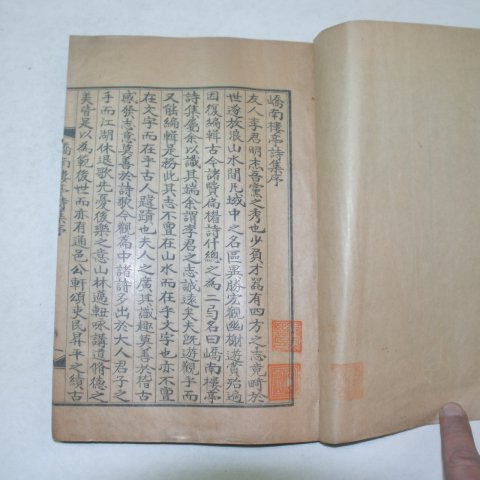 嶠南樓亭詩集序
友人李君明杰吾黨之秀也少負才器有四方之志竟畸於
世遂放浪山水間凡域中之名區異勝宏觀幽榭遊賞殆遍
因復編輯古今諸賢扁楣詩什總之爲二弓名曰嶠南樓亭
詩集屬余以識其端余謂李君之志誠遠矣夫旣遊觀乎而
又能編輯是務此其志不亶在山水而在乎文字也亦不亶
在文字而在乎古人躅蹟也夫人之廣其識趣莫善於稽古
感發志意莫善於詩歌今觀篇中諸詩多出於大人君子之
手而江湖休退歌先憂後樂之意山林邁軸咏講道脩德之
美皆足以爲範後世而亦有通邑公軒頌東民昇平之績古
嶠南樓亭詩集序